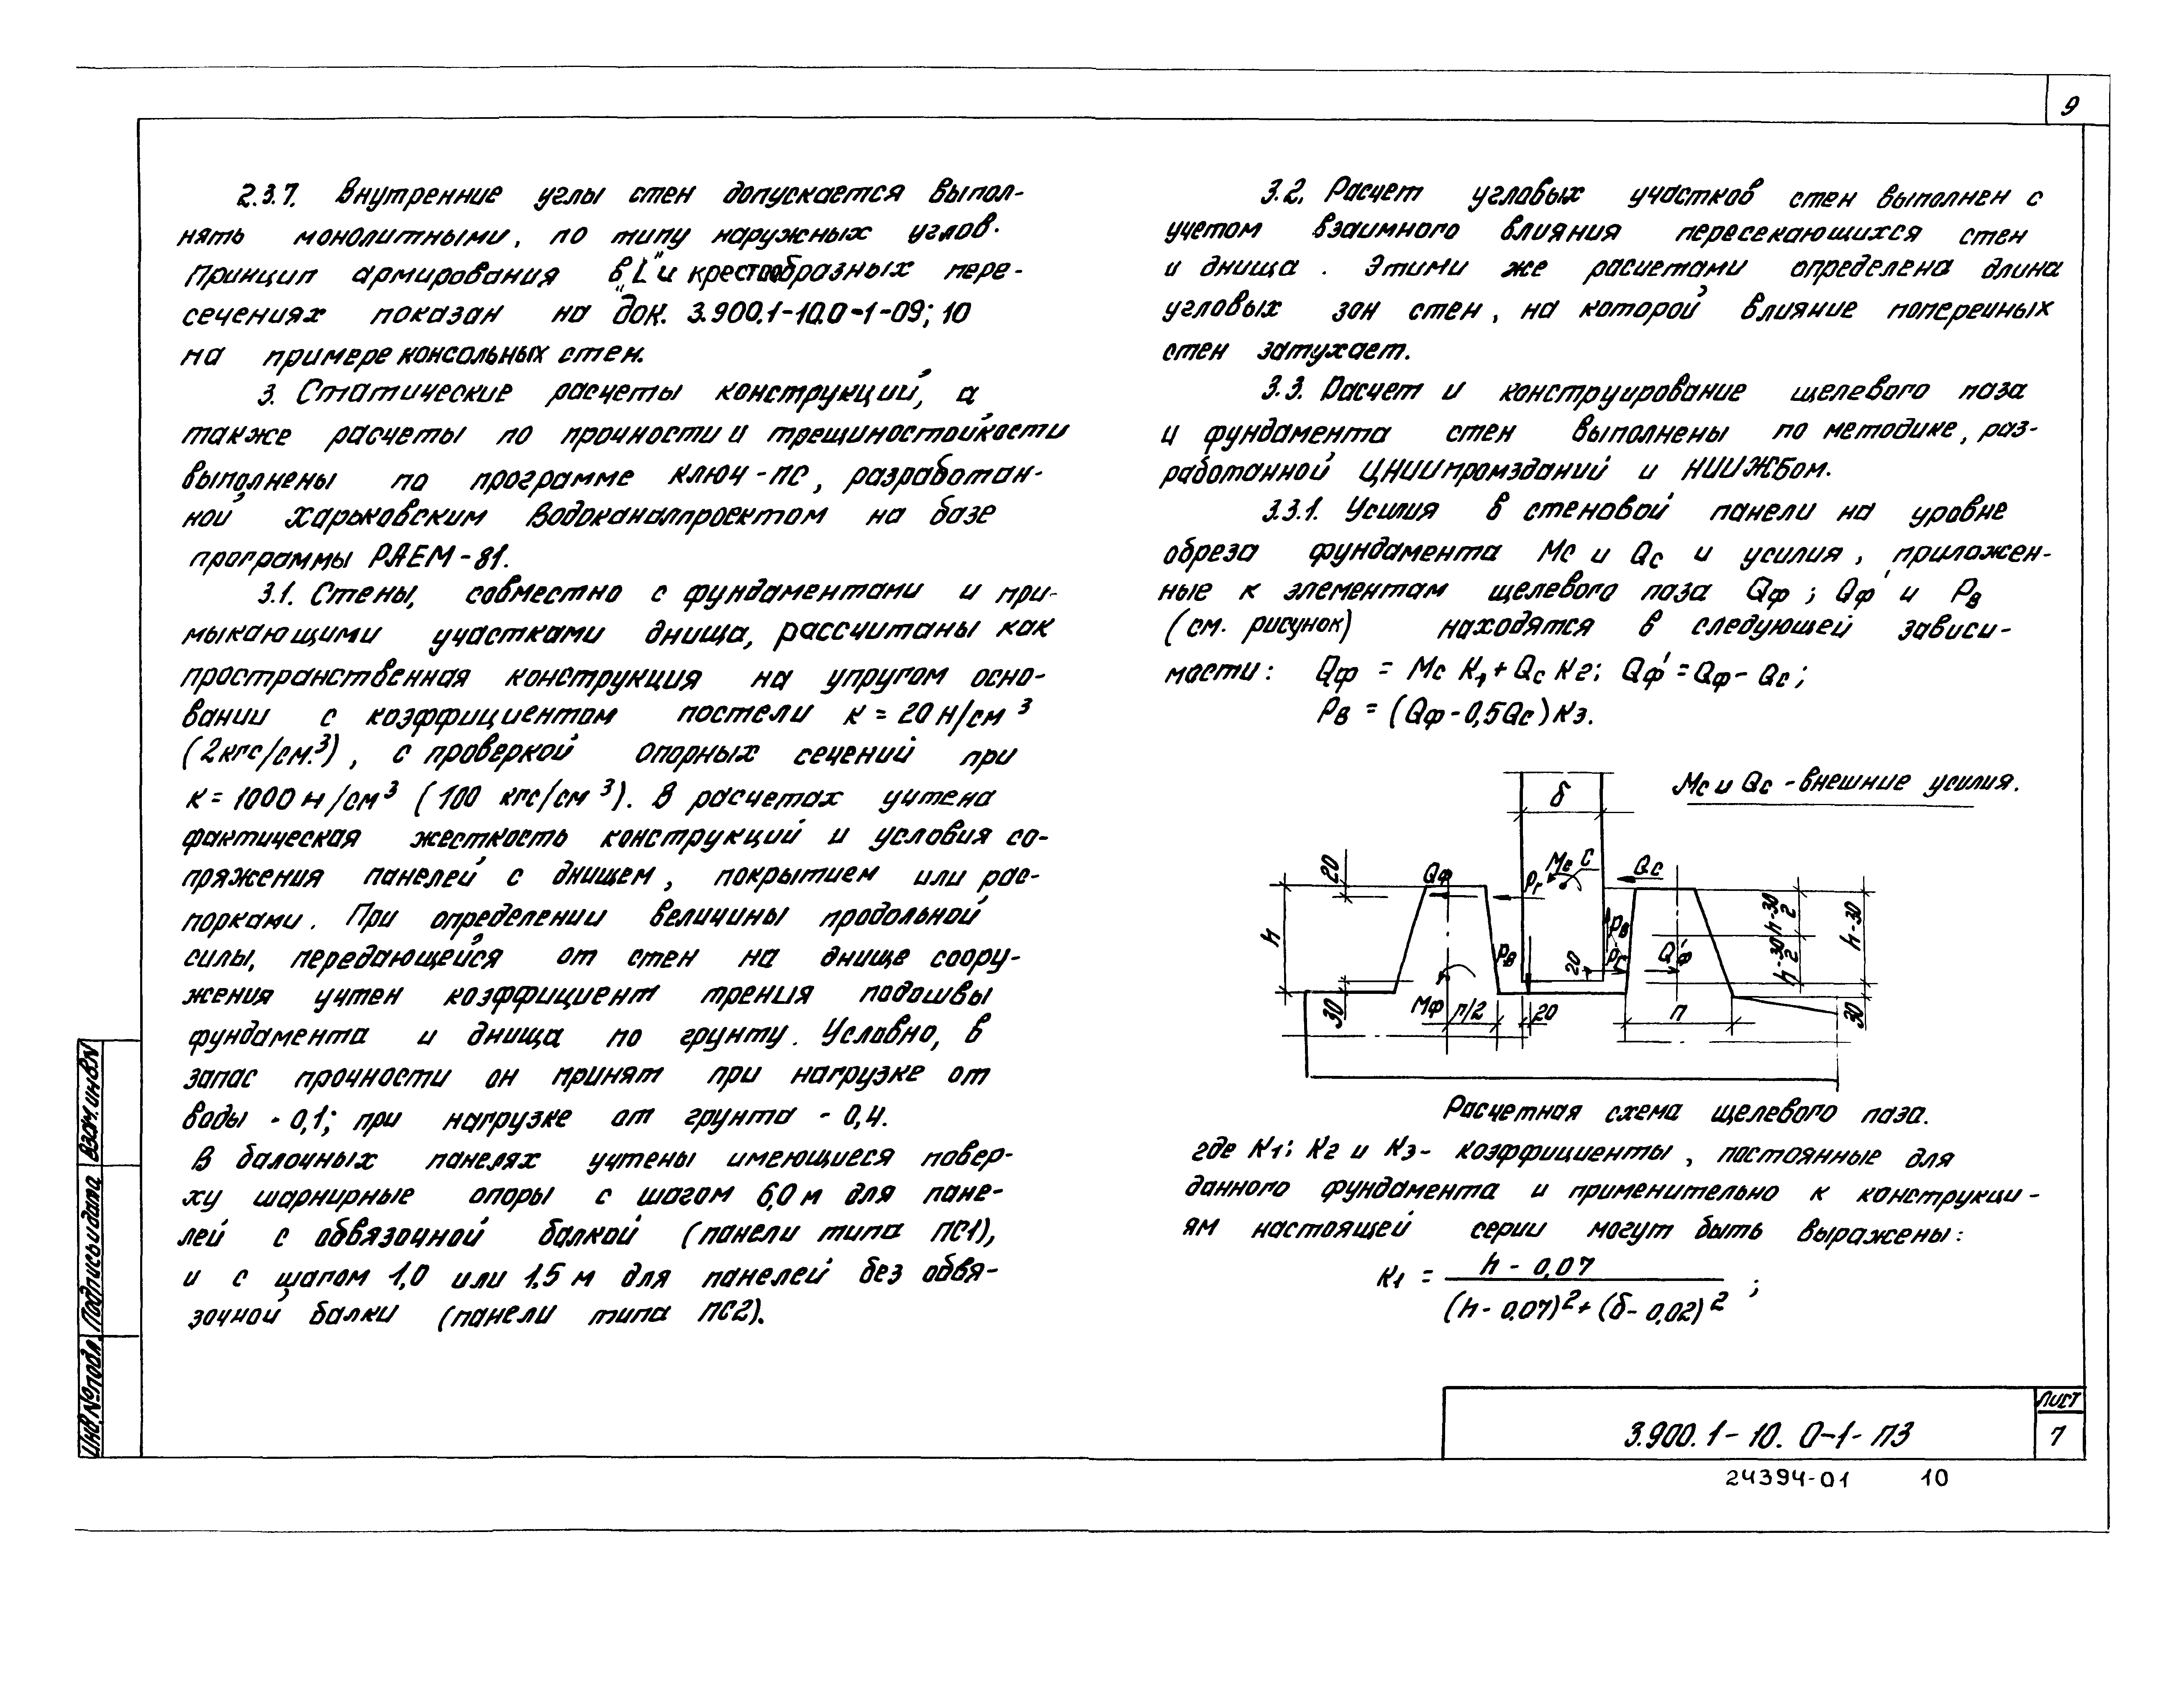 9
2.3.7. Внутренние углы стен допускается выпол-
нять монолитными, по типу наружных углов.
Принцип армирования в „L" и крестообразных пере-
сечениях показан на док. 3.900.1-10.0-1-09; 10
на примере консольных стен.
3. Статические расчеты конструкций, а
также расчеты по прочности и трещиностойкости
выполнены по программе Ключ-ПС, разработан-
ной Харьковским Водоканалпроектом на базе
программы РАЕМ-81.
3.1. Стены, совместно с фундаментами и при-
мыкающими участками днища, рассчитаны как
пространственная конструкция на упругом осно-
вании с коэффициентом постели К = 20 Н/см³
(2кгс/см.³), с проверкой опорных сечений при
К = 1000 Н/см³ (100 кгс/см³). В расчетах учтена
фактическая жесткость конструкций и условия со-
пряжения панелей с днищем, покрытием или рас-
порками. При определении величины продольной
силы, передающейся от стен на днище соору-
жения учтен коэффициент трения подошвы
фундамента и днища по грунту. Условно, в
запас прочности он принят при нагрузке от
воды - 0,1; при нагрузке от грунта - 0,4.
В балочных панелях учтены имеющиеся повер-
ху шарнирные опоры с шагом 6,0 м для пане-
лей с обвязочной балкой (панели типа ПС1),
и с шагом 1,0 или 1,5 м для панелей без обвя-
зочной балки (панели типа ПС2).
3.2. Расчет угловых участков стен выполнен с
учетом взаимного влияния пересекающихся стен
и днища. Этими же расчетами определена длина
угловых зон стен, на которой влияние поперечных
стен затухает.
3.3. Расчет и конструирование щелевого паза
и фундамента стен выполнены по методике, раз-
работанной ЦНИИпромзданий и НИИЖБом.
3.3.1. Усилия в стеновой панели на уровне
обреза фундамента Мс и Qс и усилия, приложен-
ные к элементам щелевого паза Qф; Qф' и Рв
(см. рисунок) находятся в следующей зависи-
мости: Qф = Мс К1 + Qс К2; Qф' = Qф - Qс;
Рв = (Qф - 0,5Qс) К3.
Мс и Qс - внешние усилия.
δ
20
Qф
Рг
Мс
С
Qс
h
Рв
Рв
Рс
20
Q'ф
h-30
2
h-30
2
h-30
30
Мф
п/2
20
п
30
Расчетная схема щелевого паза.
где К1; К2 и К3 - коэффициенты, постоянные для
данного фундамента и применительно к конструкци-
ям настоящей серии могут быть выражены:
К1 = h - 0,07
(h - 0,07)² + (δ - 0,02)² ;
Взам.инв№
Подпись и дата
Инв.№подл.
3.900.1-10. 0-1-ПЗ
Лист
7
24394-01 10